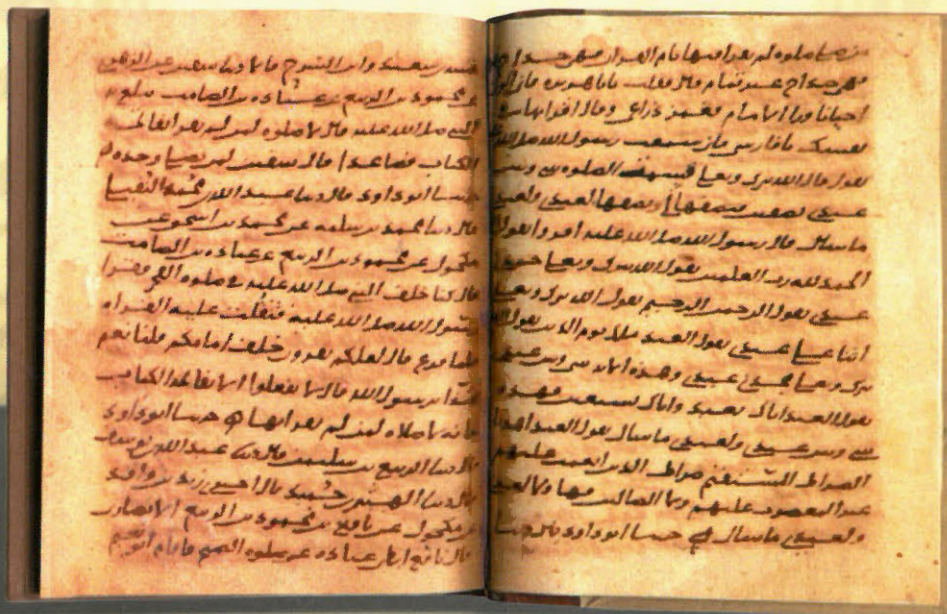 من صلى صلوة لم يقرا فيها بام القران فهى خداج
فهى خداج غير تمام قال فقلت يا با هريرة فانى اكون
احيانا ورا الامام فغمز ذراعى وقال اقرا بها فى
نفسك يا فارسى فانى سمعت رسول الله صلى الله
يقول قال الله تبرك وتعلى قسمت الصلوه بينى وبين
عبدى نصفين فنصفها لى ونصفها لعبدى ولعبدى
ما سال قال رسول الله صلى الله عليه اقروا يقول
الحمد لله رب العلمين يقول الله تبرك وتعلى حمدنى
عبدى يقول الرحمن الرحيم يقول الله تبرك وتعلى
اثنا على عبدى يقول العبد ملك يوم الدين يقول الله
تبرك وتعلى مجدنى عبدى وهذه الاية بينى وبين عبدى
يقول العبد اياك نعبد واياك نستعين فهذه
بينى وبين عبدى ولعبدى ما سال يقول العبد اهدنا
الصراط المستقيم صراط الذين انعمت عليهم
غير المغضوب عليهم ولا الضالين فهاولا لعبدى
ولعبدى ما سال حدثنا ابو داود قال حدثنا
قتيبة بن سعيد وابن السرح قالا دنا سفين عن الزهرى
عن محمود بن الربيع عن عباده بن الصامت يبلغ به
النبى صلى الله عليه قال لا صلوه لمن لم يقرا بفاتحة
الكتاب فصاعدا قال سفين لمن يصلى وحده
حدثنا ابو داود قال دنا عبد الله بن محمد النفيلى
قال دنا محمد بن سلمه عن محمد بن اسحق عن
مكحول عن محمود بن الربيع عن عباده بن الصامت
قال كنا خلف النبى صلى الله عليه فى صلوه الفجر فقرا
رسول الله صلى الله عليه فثقلت عليه القراه
فلما فرغ قال لعلكم تقرون خلف امامكم قلنا نعم
هذا يرسول الله قال لا تفعلوا الا بفاتحة الكتاب
فانه لا صلاه لمن لم يقرا بها حدثنا ابو داود
قال دنا الربيع بن سليمن قال دنا عبد الله بن يوسف
قال دنا الهيثم بن حميد قال اخبرنى زيد بن واقد
عن مكحول عن نافع بن محمود بن الربيع الانصارى
قال نافع ابطا عباده عن صلوه الصبح فاقام ابو نعيم